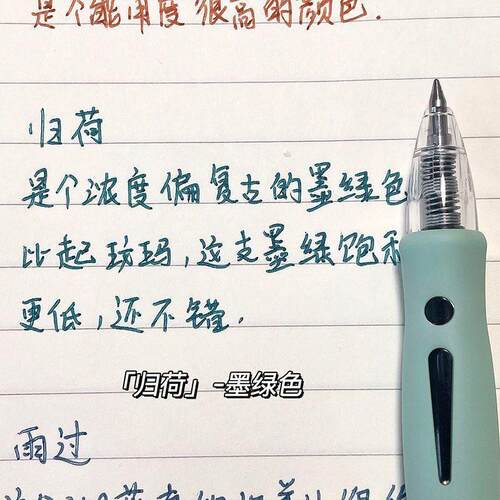 是个能用度很高的颜色.
归荷
是个浓度偏复古的墨绿色
比起玻玛,这支墨绿饱和
更低,还不错.
「归荷」-墨绿色
雨过